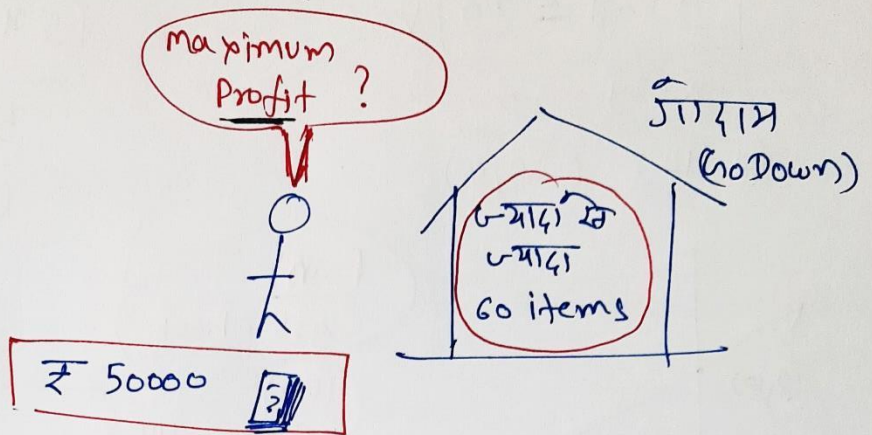 Maximum
Profit ?
गोदाम
(GoDown)
ज्यादा से
ज्यादा
60 items
₹ 50000
?